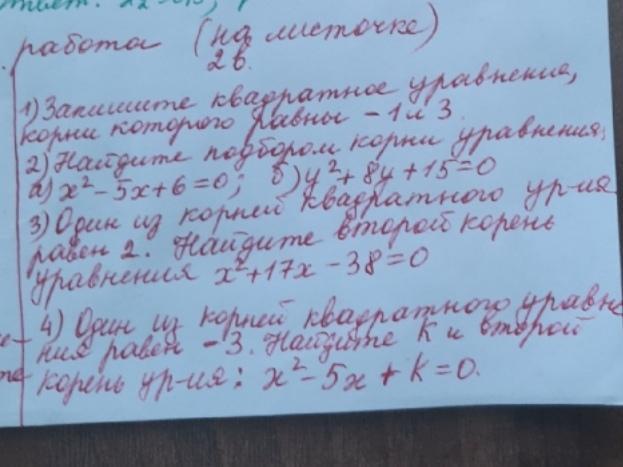 работа (на листочке)
2в.
1) Запишите квадратное уравнение,
корни которого равны -1 и 3.
2) Найдите подбором корни уравнения:
а) x² - 5x + 6 = 0; б) y² + 8y + 15 = 0
3) Один из корней квадратного ур-ия
равен 2. Найдите второй корень
уравнения x² + 17x - 38 = 0
4) Один из корней квадратного уравне-
ния равен -3. Найдите K и второй
корень ур-ия: x² - 5x + K = 0.